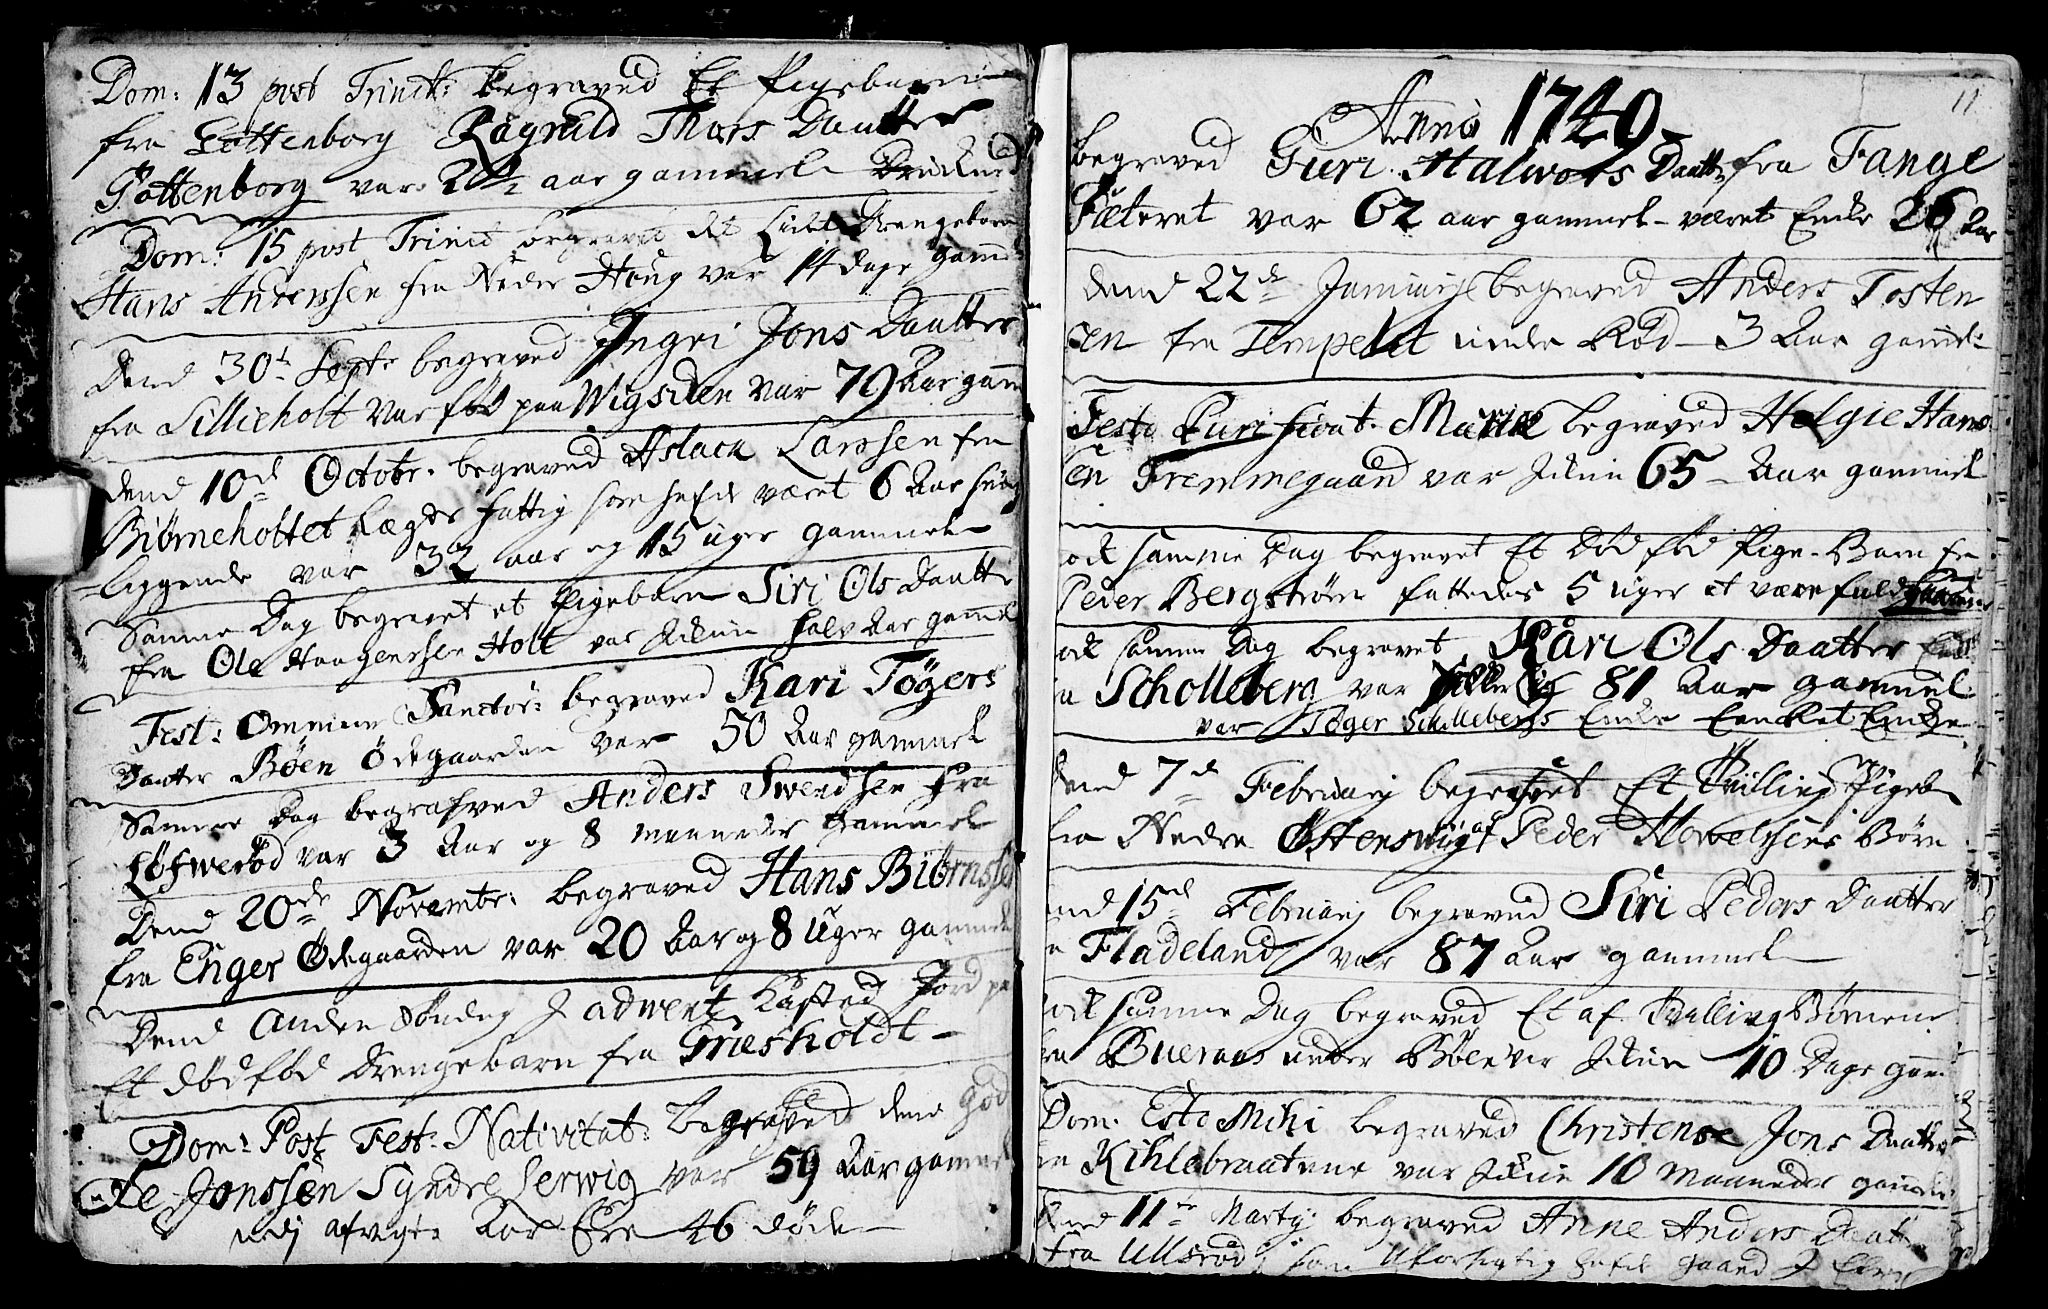 Dom: 13 post Trinit: begraved Et Pigebarn
fra Gottenborg Ragnild Thors Daatter
Gottenborg var 2 1/2 aar gammel
Dom: 15 post Trinit begravet det Lidet Drengebarn
Hans Anderssen fra Neder Houg var 14 dage gamel
Dend 30t Septr begraved Ingri Jons Daatter
fra Lillieholt var fød paa Wigsiden var 79 Aar gam
dend 10d Octobr. begraved Aslack Larssen fra
Biørneholtet Lægds fattig som hafde været 6 Aar
liggende var 32 aar og 15 uger gammel
Samme Dag begravet et Pigebarn Siri Ols Daatter
fra Ole Haagenssen Holt var Ickun halv Aar gamel
Fest: Omnium Sanctor: begraved Kari Tøgers
Daatter Bøen Ødegaarden var 50 Aar gammel
Samme Dag begrafved Anders Swendsen fra
Løfwerød var 3 Aar og 8 maaneder gammel
Dend 20de Novembr: begraved Hans Biørnssen
fra Enger Ødegaarden var 20 Aar og 8 Uger gammel
Dend Anden Søndag I advent Kasted Jord paa
Et dødfød Drengebarn fra Griesholdt
Dom: Post Fest: Nativitat: begraved dend God
Ole Jonssen Syndre Serwig var 59 Aar gammel
udj afvigte Aar Ere 46 døde
11
Anno 1740
begraved Guri Halwors Daatter fra Fange
Sæteret var 62 aar gammel været Enke 26 Aar
dend 22de Januarij begraved Anders Tosten
sen fra Tempelet under Rød 3 Aar gamel
Festo Purificat. Mariæ begraved Helgie Hans
sen Fremmegaard var Ickun 65 Aar gammel
ock samme Dag begravet Et Død fød Pige-Barn fra
Peder Bergstrøm fattedes 5 uger at være fuld
ock samme Dag begravet Kari Ols Daatter
fra Scholleberg var 81 Aar gammel
var Tøger Schollebergs Enke
dend 7d Februarij begravet Et Tvilling Pigeb
fra Nedre Østenswig af Peder Howelssens Børn
dend 15d Februarij begraved Siri Peders Daatter
fra Fladeland var 87 Aar gammel
ock samme Dag begraved Et af Tvilling Børnene
fra Bueraas under Bøen var Ickun 10 Dage gam
Dom. Esto Mihi begraved Christense Jons Daatter
fra Kihlebraatene var Ickun 10 Maaneder gammel
dend 11te Martij begraved Anne Anders Daatt
fra Ullsrød, som Uforsigtig hafde gaaed I